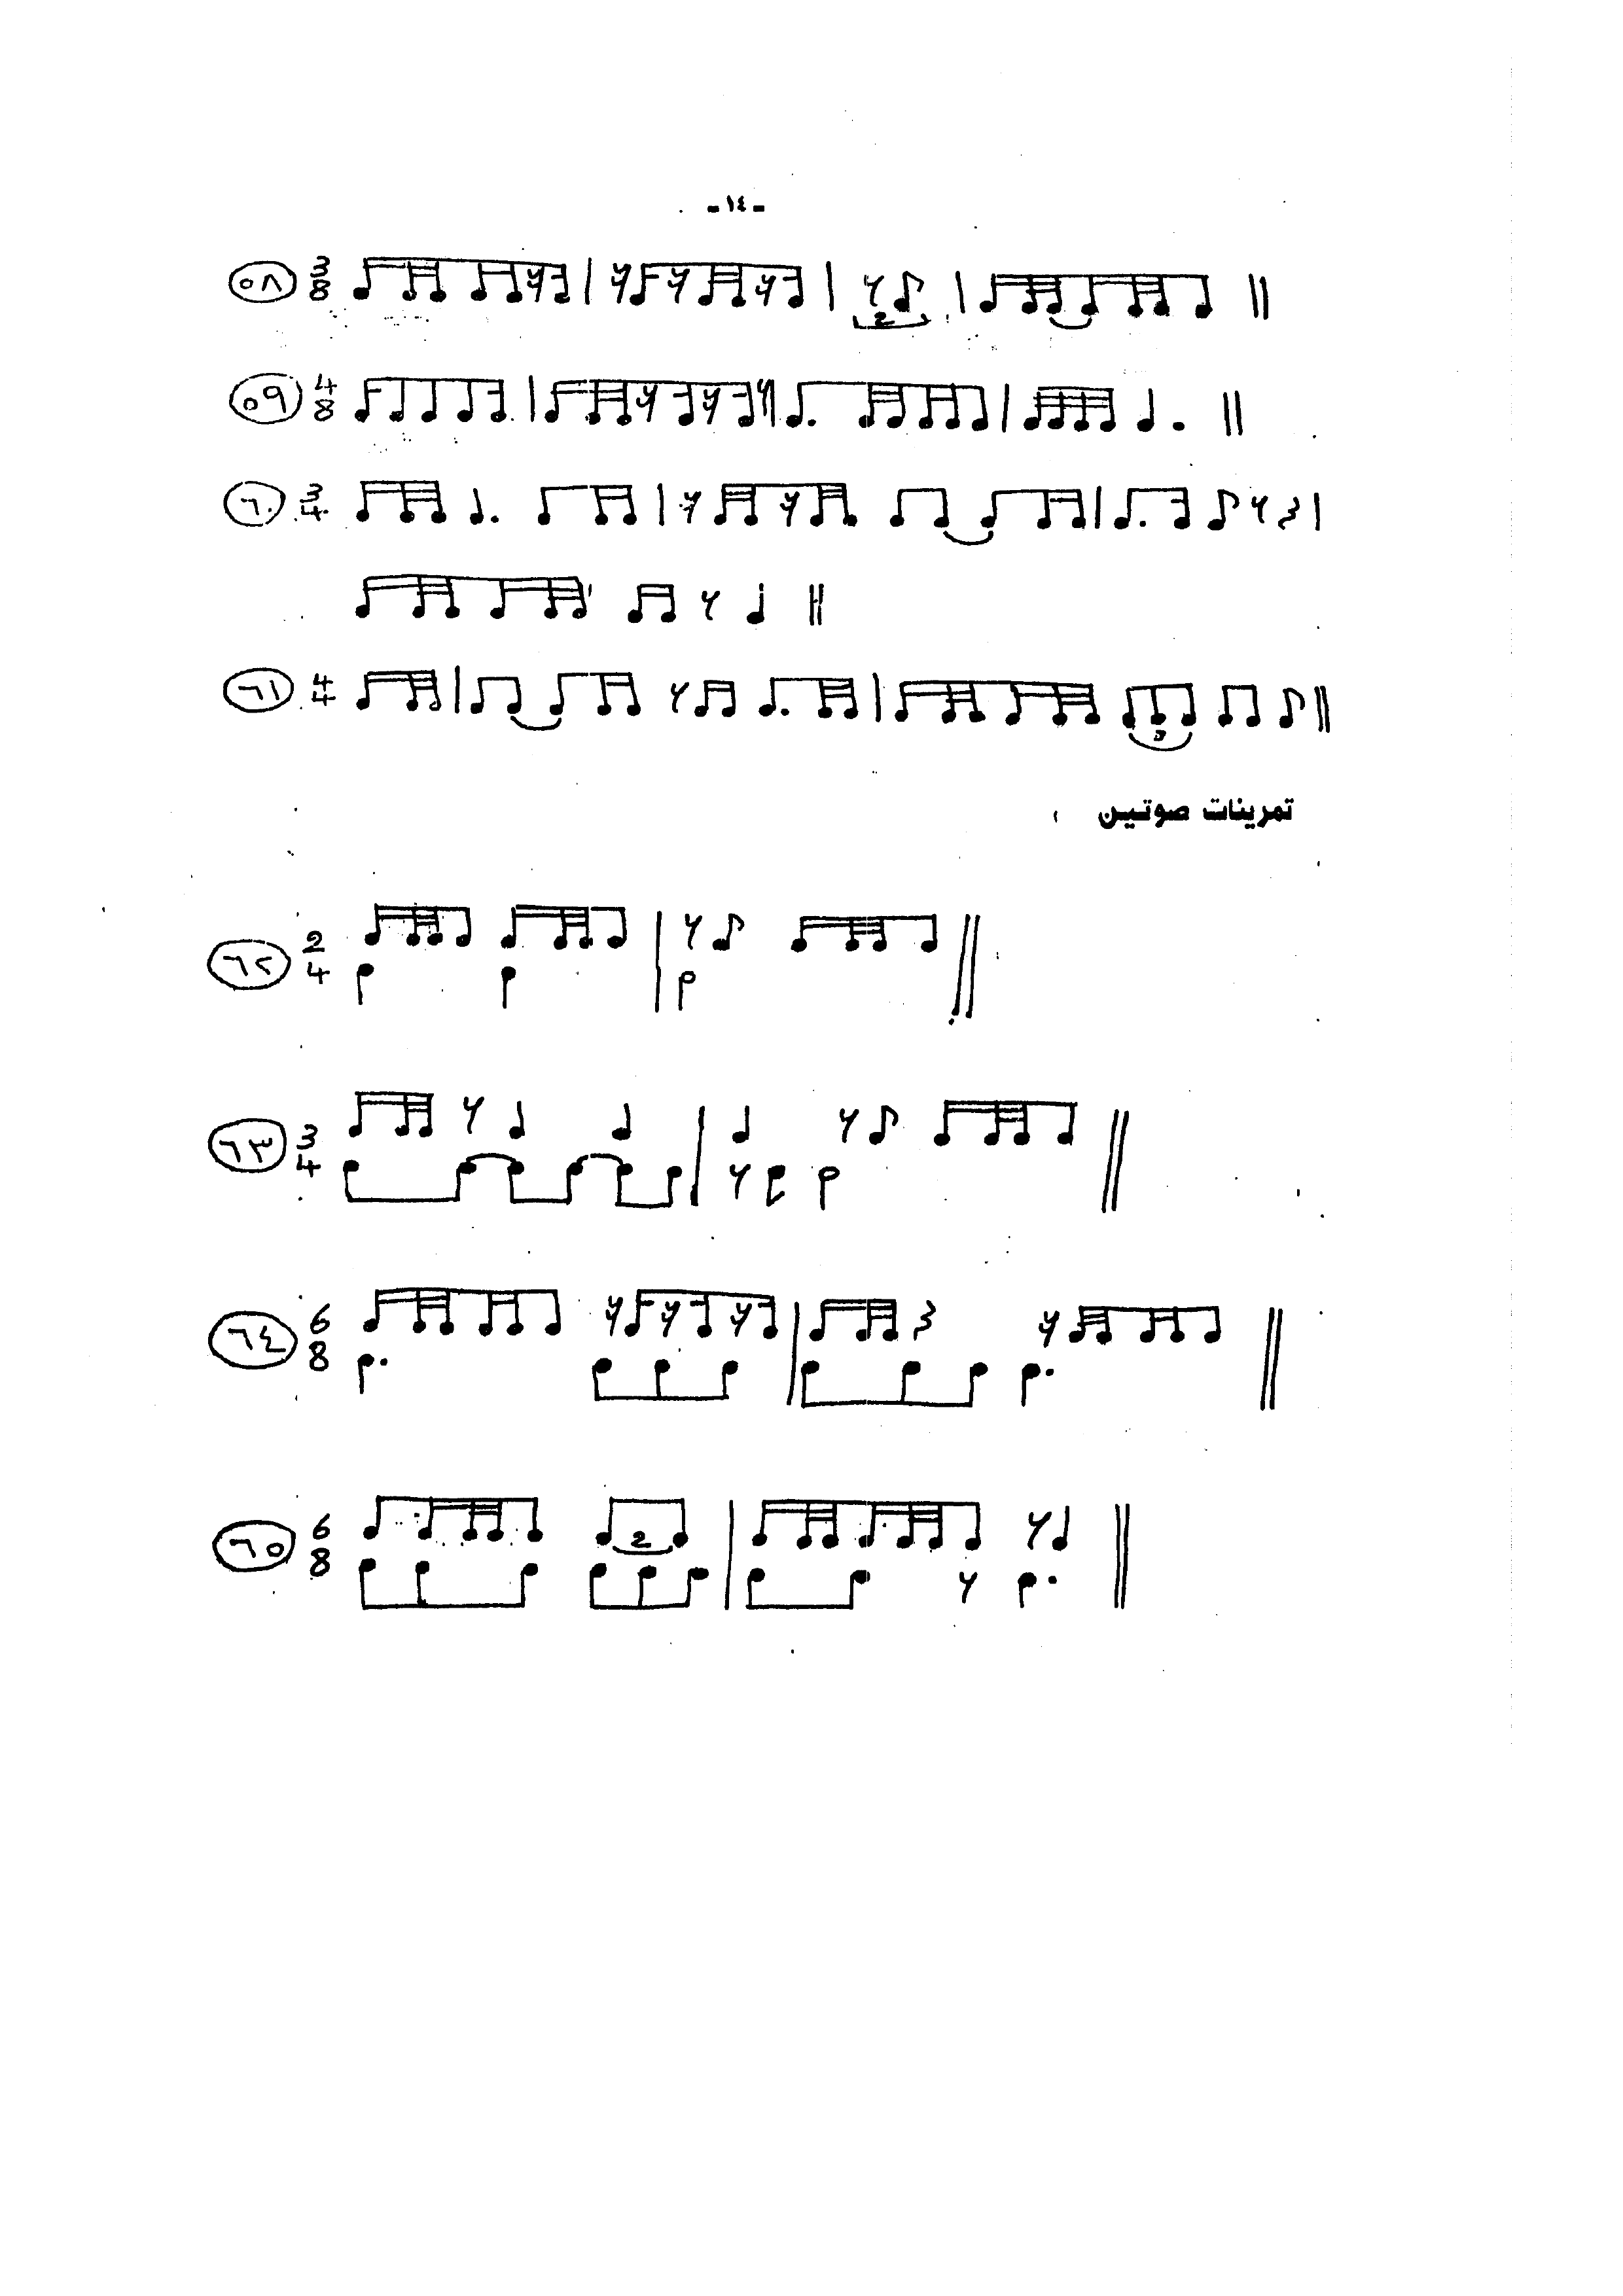 - ١٤ -
٥٨ 3 8 2
٥٩ 4 8
٦٠ 3 4
٦١ 4 4 3
تمرينات صوتين :
٦٢ 2 4
٦٣ 3 4
٦٤ 6 8
٦٥ 6 8 2